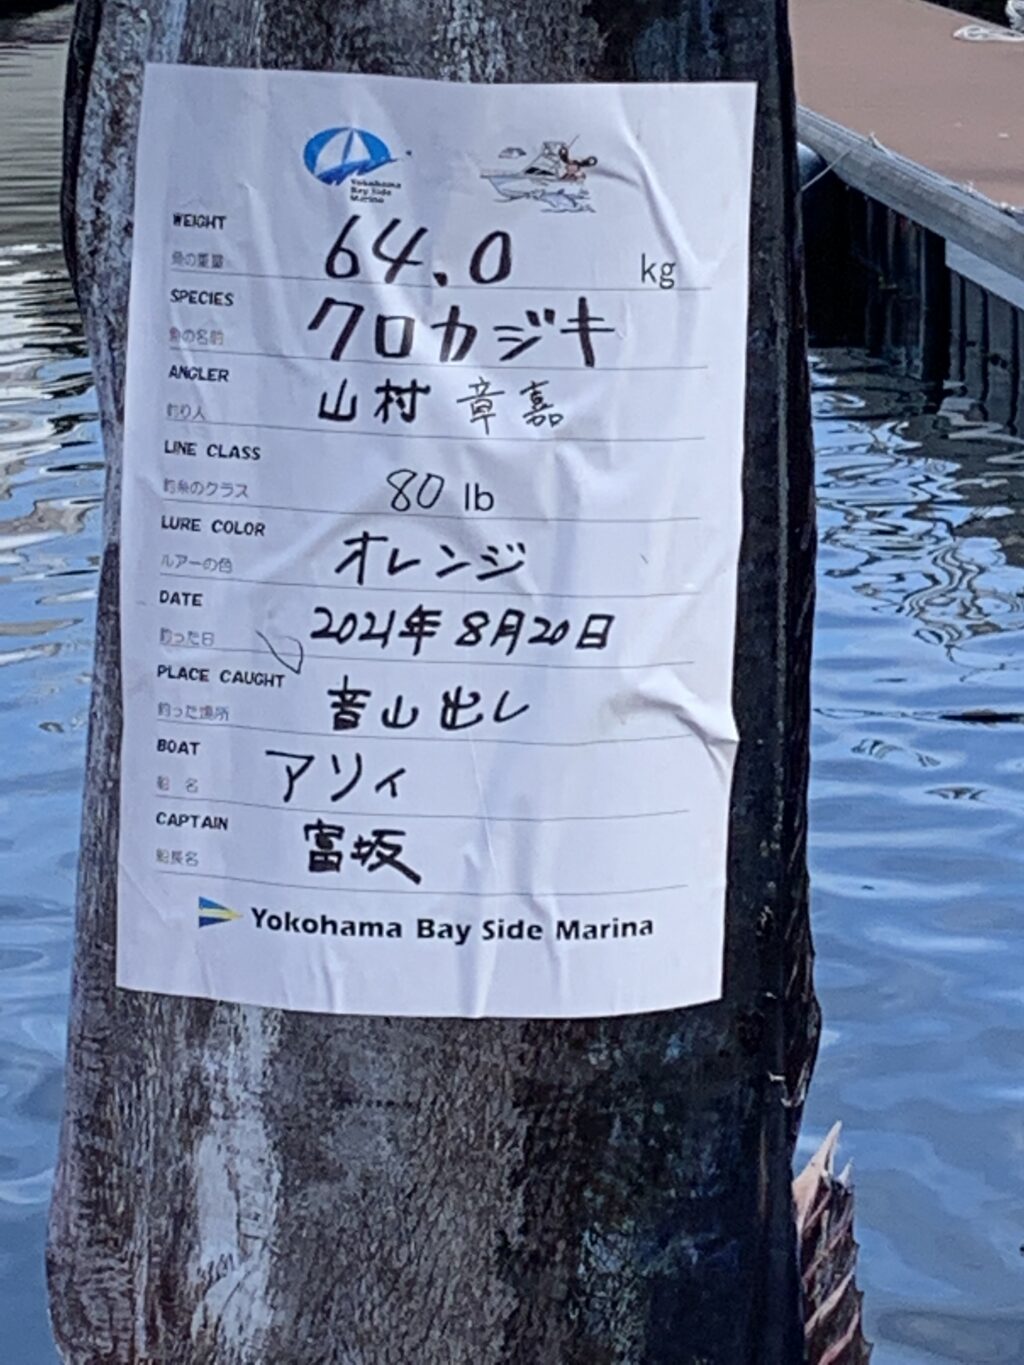 Yokohama
Bay Side
Marina
WEIGHT
魚の重量
64.0 kg
SPECIES
魚の名前
クロカジキ
ANGLER
釣り人
山村 章嘉
LINE CLASS
釣糸のクラス
80 lb
LURE COLOR
ルアーの色
オレンジ
DATE
釣った日
2021年8月20日
PLACE CAUGHT
釣った場所
山出し
BOAT
船名
アソィ
CAPTAIN
船長名
富坂
Yokohama Bay Side Marina